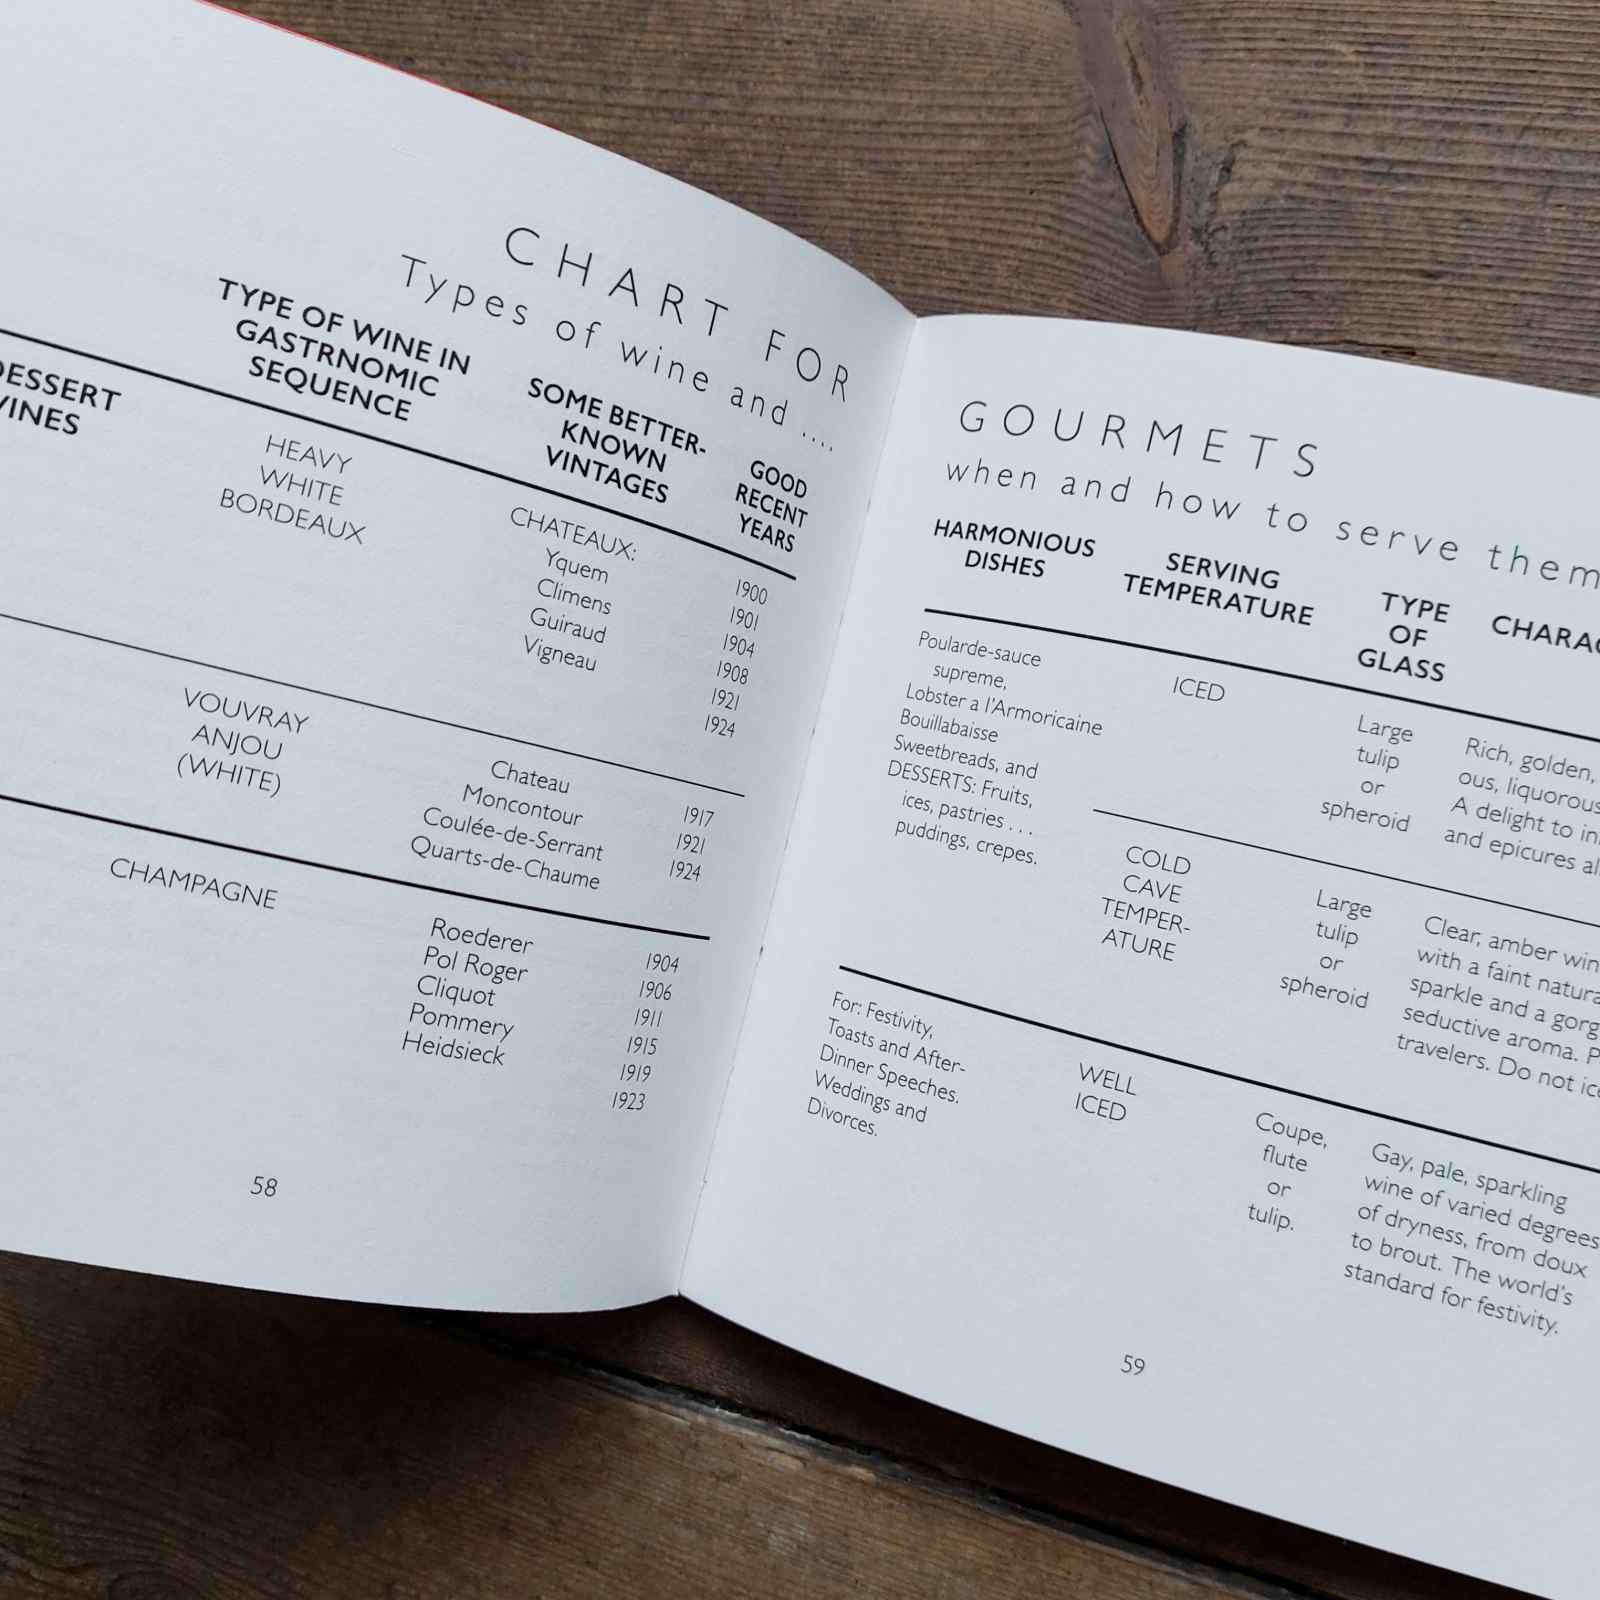 CHART FOR
Types of wine and ....
TYPE OF WINE IN
GASTRNOMIC
SEQUENCE
SOME BETTER-
KNOWN
VINTAGES
GOOD
RECENT
YEARS
HEAVY
WHITE
BORDEAUX
CHATEAUX:
Yquem
Climens
Guiraud
Vigneau
1900
1901
1904
1908
1921
1924
VOUVRAY
ANJOU
(WHITE)
Chateau
Moncontour
Coulée-de-Serrant
Quarts-de-Chaume
1917
1921
1924
CHAMPAGNE
Roederer
Pol Roger
Cliquot
Pommery
Heidsieck
1904
1906
1911
1915
1919
1923
58
GOURMETS
when and how to serve them
HARMONIOUS
DISHES
SERVING
TEMPERATURE
TYPE
OF
GLASS
Poularde-sauce
supreme,
Lobster a l'Armoricaine
Bouillabaisse
Sweetbreads, and
DESSERTS: Fruits,
ices, pastries . . .
puddings, crepes.
ICED
Large
tulip
or
spheroid
Rich, golden,
ous, liquorous
A delight to
and epicures
COLD
CAVE
TEMPER-
ATURE
Large
tulip
or
spheroid
Clear, amber
with a faint
sparkle and a
seductive aroma.
travelers. Do not
For: Festivity,
Toasts and After-
Dinner Speeches.
Weddings and
Divorces.
WELL
ICED
Coupe,
flute
or
tulip.
Gay, pale, sparkling
wine of varied degrees
of dryness, from doux
to brout. The world's
standard for festivity.
59